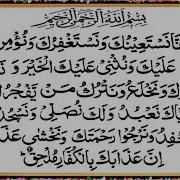 بِسْمِ اللهِ الرَّحْمٰنِ الرَّحِيْمِ
نَّا نَسْتَعِيْنُكَ وَنَسْتَغْفِرُكَ وَنُؤْمِنُ
عَلَيْكَ وَنُثْنِيْ عَلَيْكَ الْخَيْرَ وَ
كَ وَنَخْلَعُ وَنَتْرُكُ مَنْ يَّفْجُرُ
اكَ نَعْبُدُ وَلَكَ نُصَلِّيْ وَنَسْجُدُ
فِدُ وَنَرْجُوْا رَحْمَتَكَ وَنَخْشٰى عَذَا
اِنَّ عَذَابَكَ بِالْكُفَّارِ مُلْحِقٌ